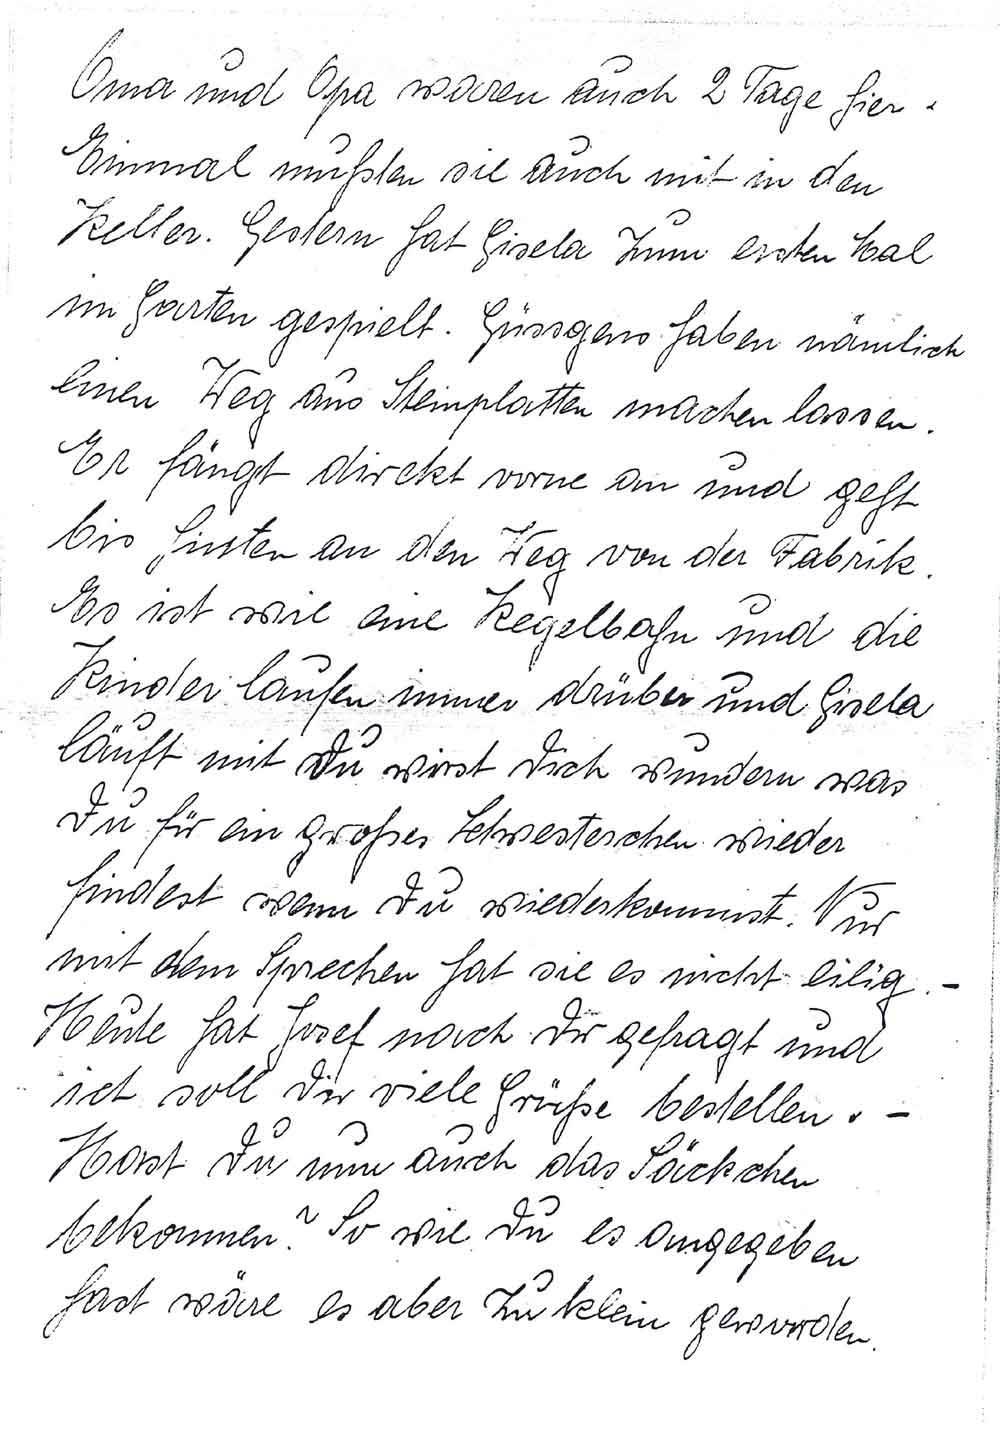 Oma und Opa waren auch 2 Tage hier.
Einmal mußten sie auch mit in den
Keller. Gestern hat Gisela zum ersten Mal
im Garten gespielt. Güssgens haben nämlich
einen Weg aus Steinplatten machen lassen.
Er fängt direkt vorne an und geht
bis hinten an den Weg von der Fabrik.
Es ist wie eine Kegelbahn und die
Kinder laufen immer drüber und Gisela
läuft mit Du wirst Dich wundern was
Du für ein großes Schwesterchen wieder
findest wenn Du wiederkommst. Nur
mit dem Sprechen hat sie es nicht eilig. –
Heute hat Josef nach Dir gefragt und
ich soll Dir viele Grüße bestellen. –
Hast Du nun auch das Säckchen
bekommen? So wie Du es angegeben
hast wäre es aber zu klein geworden.